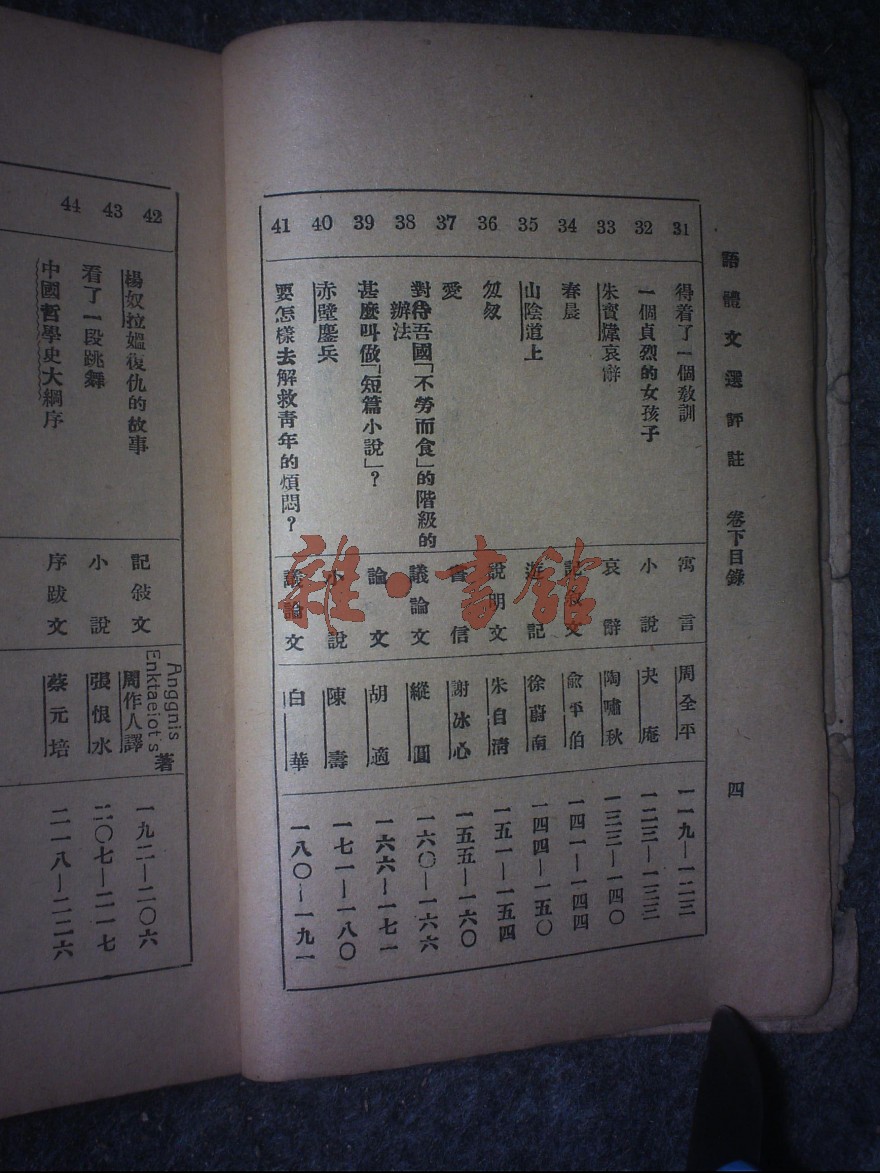 語體文選評註 卷下目錄 四
31 得着了一個教訓 寓言 周全平 一一九—一二三
32 一個貞烈的女孩子 小說 夬庵 一二三—一三三
33 朱實儻哀辭 哀辭 陶嘯秋 一三三—一四〇
34 春晨 記敍文 俞平伯 一四一—一四四
35 山陰道上 遊記 徐蔚南 一四四—一五〇
36 匆匆 說明文 朱自清 一五一—一五四
37 愛 書信 謝冰心 一五五—一六〇
38 對待吾國「不勞而食」的階級的辦法 議論文 縱圓 一六〇—一六六
39 甚麼叫做「短篇小說」？ 論文 胡適 一六六—一七一
40 赤壁鏖兵 小說 陳壽 一七一—一八〇
41 要怎樣去解救青年的煩悶？ 議論文 白華 一八〇—一九一
42 楊奴拉媼復仇的故事 記敍文 Anggnis Enktaeiot's 著 周作人譯 一九二—二〇六
43 看了一段跳舞 小說 張恨水 二〇七—二一七
44 中國哲學史大綱序 序跋文 蔡元培 二一八—二二六
雜·書館